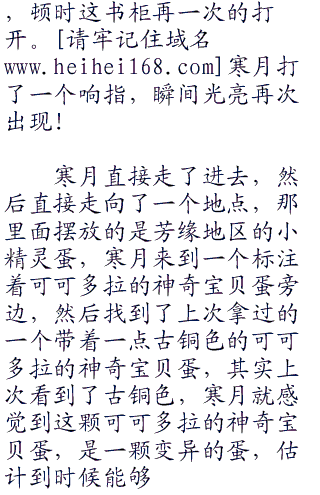 ，顿时这书柜再一次的打
开。[请牢记住域名
www.heihei168.com]寒月打
了一个响指，瞬间光亮再次
出现！
寒月直接走了进去，然
后直接走向了一个地点，那
里面摆放的是芳缘地区的小
精灵蛋，寒月来到一个标注
着可可多拉的神奇宝贝蛋旁
边，然后找到了上次拿过的
一个带着一点古铜色的可可
多拉的神奇宝贝蛋，其实上
次看到了古铜色，寒月就感
觉到这颗可可多拉的神奇宝
贝蛋，是一颗变异的蛋，估
计到时候能够